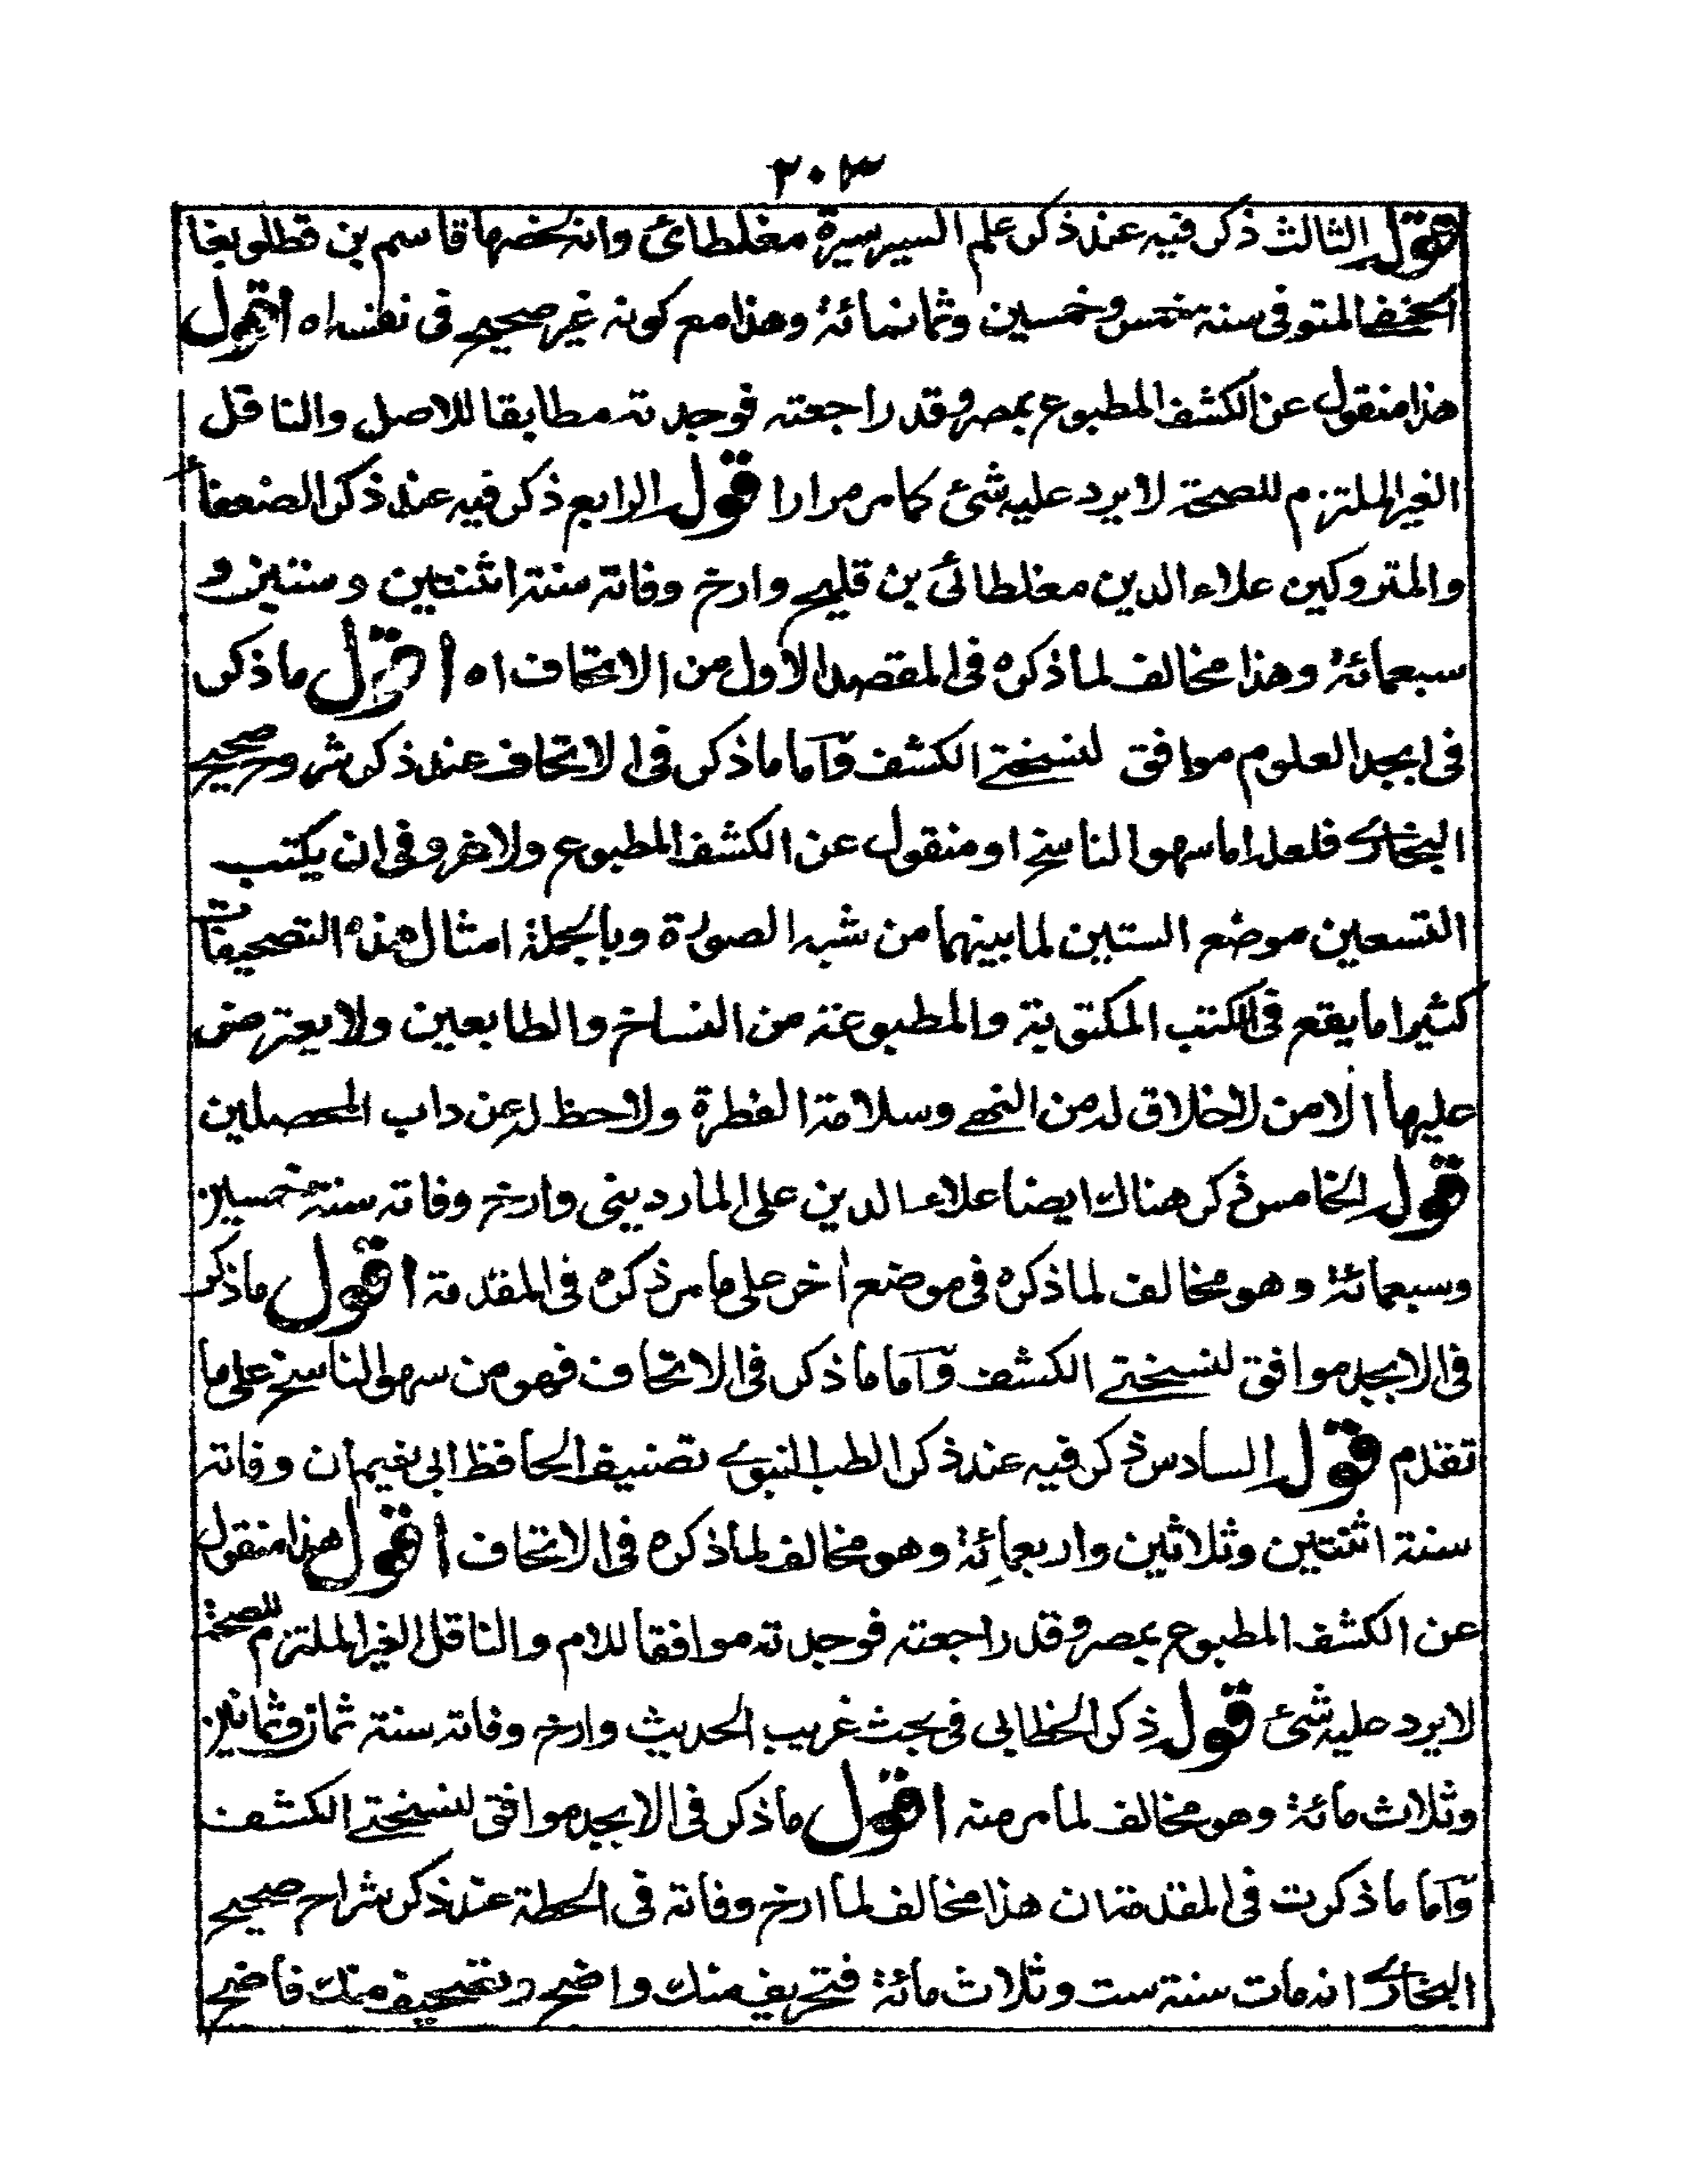 ٢٠٣
قوله الثالث ذكر فيه عند ذكر علم السير سيرة مغلطائ وانه لخصها قاسم بن قطلوبغا
الحنفى المتوفى سنة خمس وخمسين وثمانمائة وهذا مع كونه غير صحيح فى نفسه اه اقول
هذا منقول عن الكشف المطبوع بمصر وقد راجعته فوجدته مطابقا للاصل والناقل
الغير الملتزم للصحة لا يرد عليه شئ كما مر مرارا قوله الرابع ذكر فيه عند ذكر الضعفاء
والمتروكين علاء الدين مغلطائى بن قليج وارخ وفاته سنة اثنتين وستين و
سبعمائة وهذا مخالف لما ذكره فى المقصد الاول من الاتحاف اه اقول ما ذكر
فى ابجد العلوم موافق لنسختے الكشف وآما ما ذكر فى الاتحاف عند ذكر شروح صحيح
البخارى فلعله اما سهو الناسخ او منقول عن الكشف المطبوع ولا غرو فى ان يكتب
التسعين موضع الستين لما بينهما من شبه الصورة وبالجملة امثال هذه التصحيفات
كثيرا ما يقع فى الكتب المكتوبة والمطبوعة من النساخ والطابعين ولا يعترض
عليها الا من لاخلاق له من النهے وسلامة الفطرة ولا حظ له عن داب المحصلين
قوله الخامس ذكر هناك ايضا علاء الدين على الماردينى وارخ وفاته سنة خمسين
وسبعمائة وهو مخالف لما ذكره فى موضع اخر على ما مر ذكره فى المقدمة اقول ما ذكر
فى الابجد موافق لنسختے الكشف وآما ما ذكر فى الاتحاف فهو من سهو الناسخ على ما
تقدم قوله السادس ذكر فيه عند ذكر الطب النبوے تصنيف الحافظ ابى نعيم ان وفاته
سنة اثنتين وثلاثين واربعمائة وهو مخالف لما ذكره فى الاتحاف اقول هذا منقول
عن الكشف المطبوع بمصر وقد راجعته فوجدته موافقا للام والناقل الغير الملتزم للصحة
لا يرد عليه شئ قوله ذكر الخطابى فى بحث غريب الحديث وارخ وفاته سنة ثمان وثمانين
وثلاث مائة وهو مخالف لما مر منه اقول ما ذكر فى الابجد موافق لنسختے الكشف
وآما ما ذكرت فى المقدمة ان هذا مخالف لما ارخ وفاته فى الحطة عند ذكر شراح صحيح
البخارے انه مات سنة ست وثلاث مائة فتحريف منك واضح وتصحيف منك فاضح